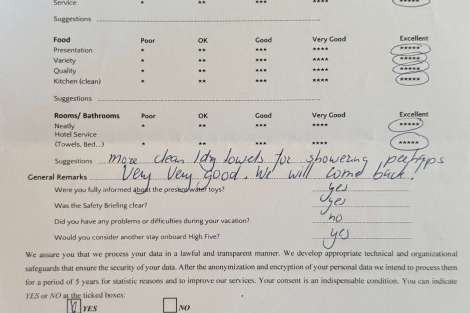 Service * ** *** **** *****
Suggestions
Food Poor OK Good Very Good Excellent
Presentation * ** *** **** *****
Variety * ** *** **** *****
Quality * ** *** **** *****
Kitchen (clean) * ** *** **** *****
Suggestions
Rooms/ Bathrooms Poor OK Good Very Good Excellent
Neatly * ** *** **** *****
Hotel Service
(Towels, Bed...) * ** *** **** *****
Suggestions more clean towels for showering perhaps
General Remarks Very Very good. We will come back!
Were you fully informed about the presto/water toys? yes
Was the Safety Briefing clear? yes
Did you have any problems or difficulties during your vacation? no
Would you consider another stay onboard High Five? yes
We assure you that we process your data in a lawful and transparent manner. We develop appropriate technical and organizational
safeguards that ensure the security of your data. After the anonymization and encryption of your personal data we intend to process them
for a period of 5 years for statistic reasons and to improve our services. Your consent is an indispensable condition. You can indicate
YES or NO at the ticked boxes:
YES NO